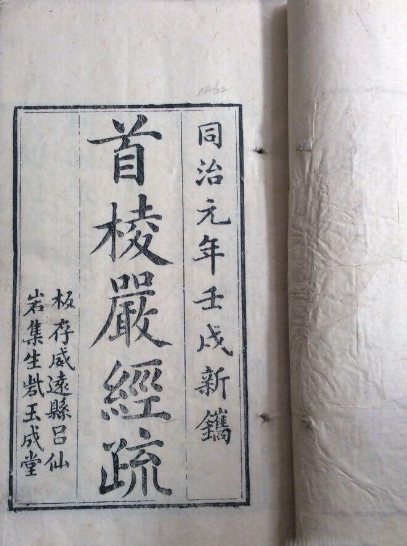 同治元年壬戌新鐫
首楞嚴經疏
板存威遠縣呂仙
岩集生砦玉成堂